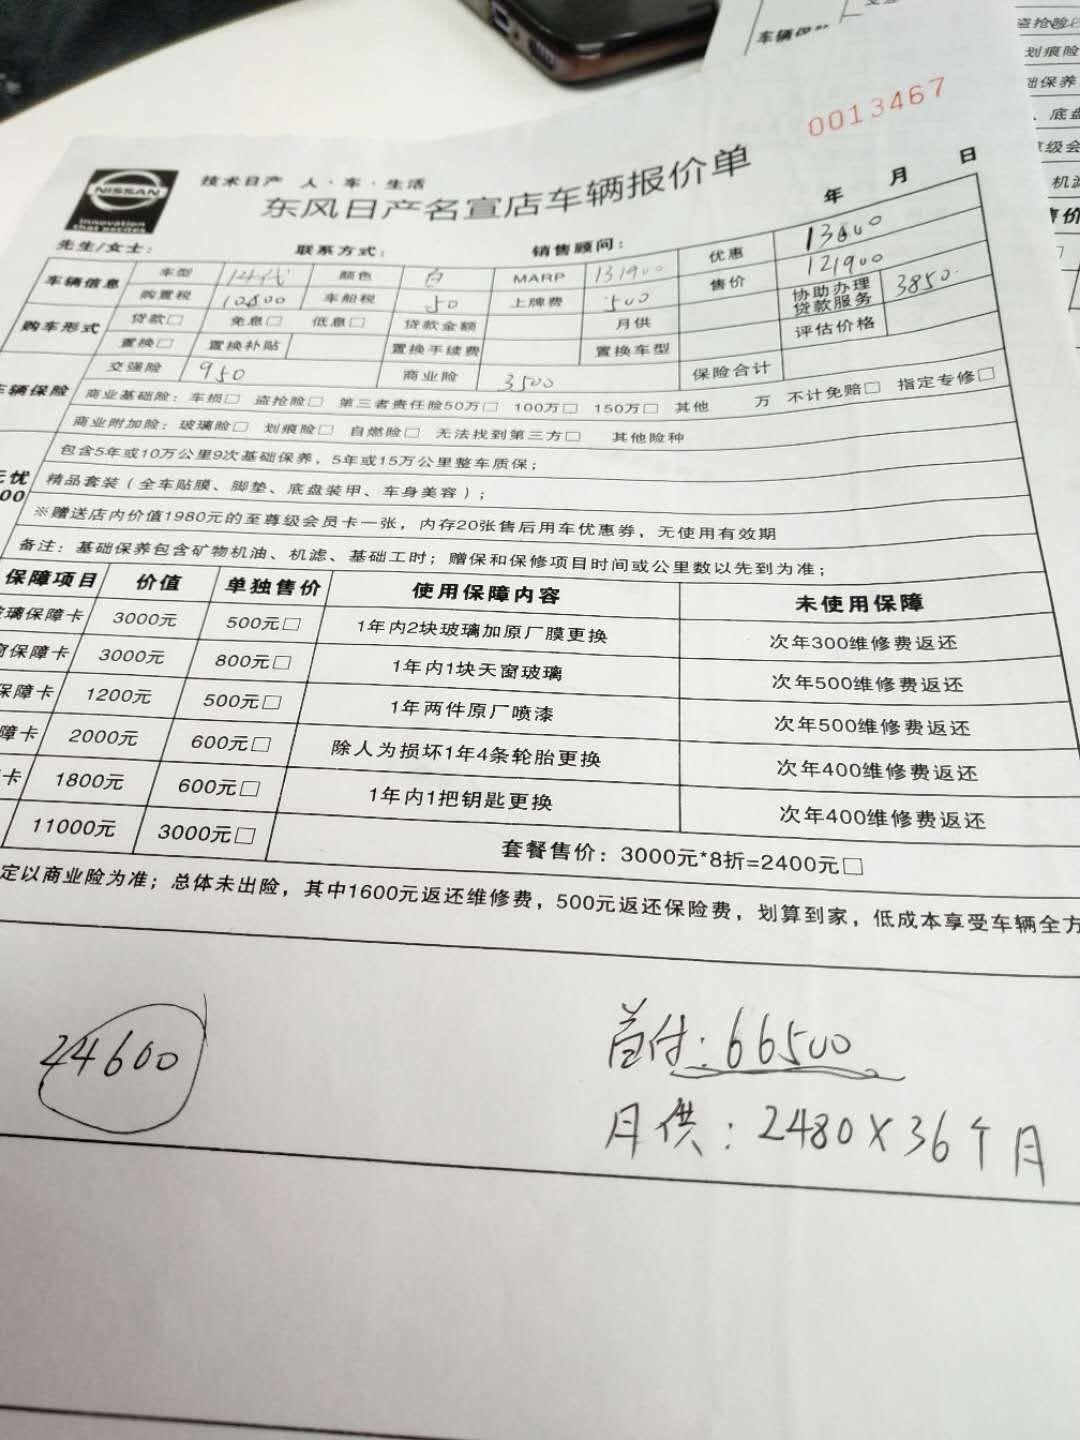 0013467
NISSAN
Innovation
that excites
技术日产 人·车·生活
东风日产名宣店车辆报价单
年 月 日
先生/女士： 联系方式： 销售顾问：
车辆信息 车型 14代 颜色 白 MARP 131900 优惠
购置税 10800 车船税 50 上牌费 500 售价 121900
购车形式 贷款□ 免息□ 低息□ 贷款金额 月供 协助办理贷款服务 3850
置换□ 置换补贴 置换手续费 置换车型 评估价格
辆保险 交强险 950 商业险 3500 保险合计
商业基础险：车损□ 盗抢险□ 第三者责任险50万□ 100万□ 150万□ 其他 万 不计免赔□ 指定专修□
商业附加险：玻璃险□ 划痕险□ 自燃险□ 无法找到第三方□ 其他险种
包含5年或10万公里9次基础保养，5年或15万公里整车质保；
忧 精品套装（全车贴膜、脚垫、底盘装甲、车身美容）；
00 ※赠送店内价值1980元的至尊级会员卡一张，内存20张售后用车优惠券，无使用有效期
备注：基础保养包含矿物机油、机滤、基础工时；赠保和保修项目时间或公里数以先到为准；
保障项目 价值 单独售价 使用保障内容 未使用保障
璃保障卡 3000元 500元□ 1年内2块玻璃加原厂膜更换 次年300维修费返还
窗保障卡 3000元 800元□ 1年内1块天窗玻璃 次年500维修费返还
保障卡 1200元 500元□ 1年两件原厂喷漆 次年500维修费返还
障卡 2000元 600元□ 除人为损坏1年4条轮胎更换 次年400维修费返还
卡 1800元 600元□ 1年内1把钥匙更换 次年400维修费返还
11000元 3000元□ 套餐售价：3000元*8折=2400元□
定以商业险为准；总体未出险，其中1600元返还维修费，500元返还保险费，划算到家，低成本享受车辆全方
24600
首付：66500
月供：2480×36个月
划痕险
础保养
底盘
级会
机滤